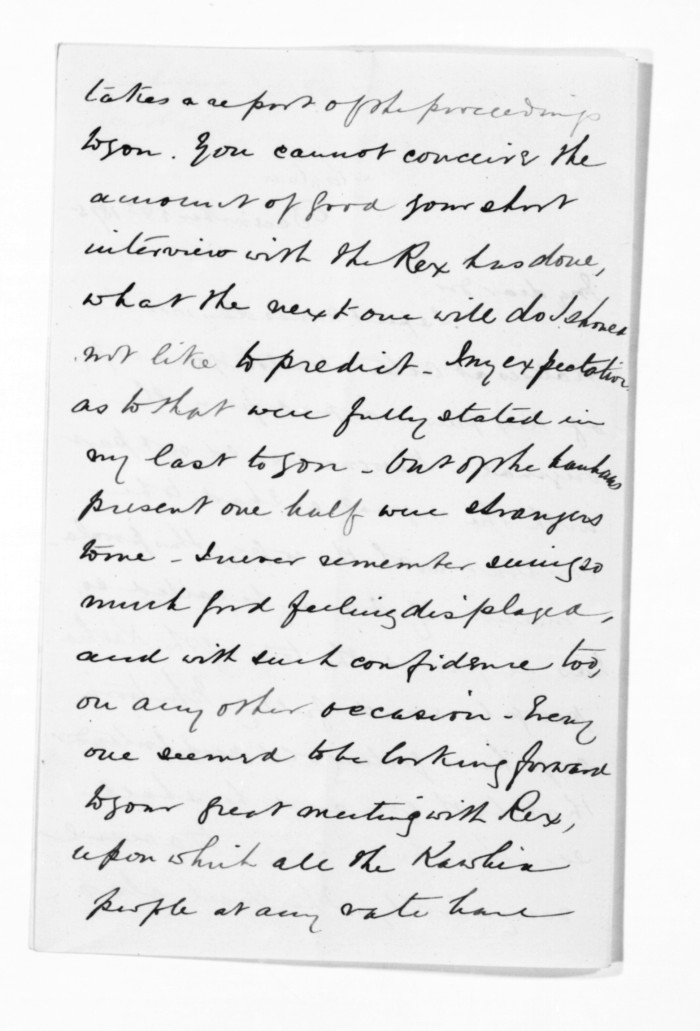 takes a report of the proceedings
to you. You cannot conceive the
amount of good your short
interview with the Rex has done,
what the next one will do I should
not like to predict - My expectations
as to that were fully stated in
my last to you - but of the hauhaus
present one half were strangers
to me - I never remember seeing so
much good feeling displayed,
and with such confidence too,
on any other occasion - Every
one seemed to be looking forward
to your great meeting with Rex,
upon which all the Kawhia
people at any rate have